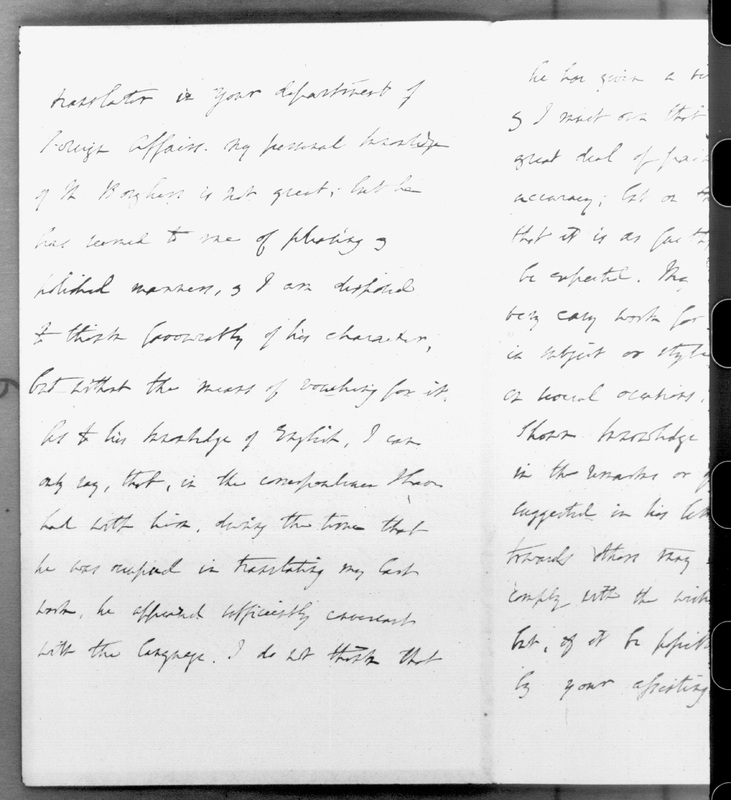 translator in your department of
Foreign Affairs. My personal knowledge
of Mr Borghers is not great; but he
has seemed to me of pleasing &
polished manners, & I am disposed
to think favourably of his character,
but without the means of vouching for it.
As to his knowledge of English, I can
only say, that, in the correspondence I have
had with him, during the time that
he was occupied in translating my last
work, he appeared sufficiently conversant
with the language. I do not think that
he has given a
& I must own that
great deal of
accuracy; but on
that it is as far
be expected. The
very easy work for
in subject or style
on several occasions.
shown knowledge
in the remarks or
suggested in his
towards others may
comply with the
but, if it be
by your assisting